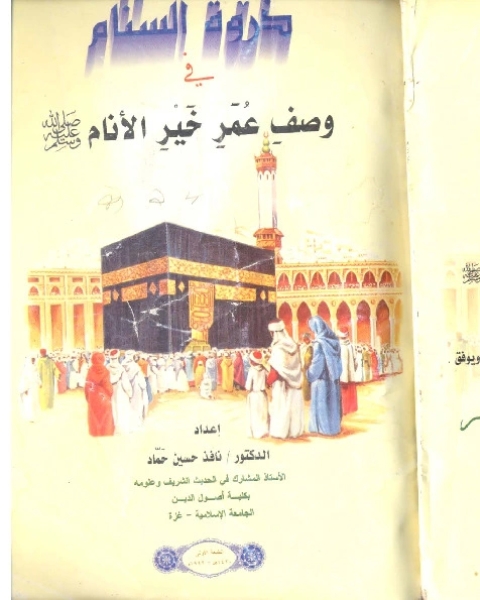 ذروة السنام
في
وصفِ عُمَرِ خَيْرِ الأنام ﷺ
إعداد
الدكتور/ نافذ حسين حمّاد
الأستاذ المشارك في الحديث الشريف وعلومه
بكلية أصول الدين
الجامعة الإسلامية - غزة
الطبعة الأولى
ﷺ
ويوفق